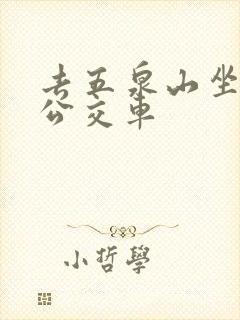 去五泉山坐
公交車
小哲學